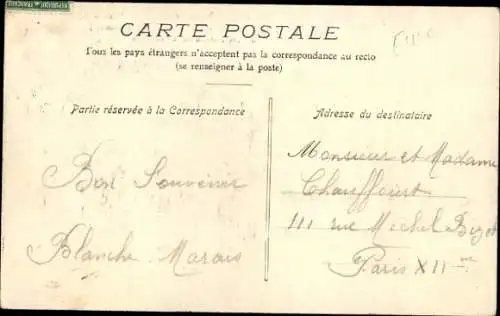 CARTE POSTALE
Tous les pays étrangers n'acceptent pas la correspondance au recto
(se renseigner à la poste)
Partie réservée à la Correspondance
Adresse du destinataire
Bon Souvenir
Blanche Marais
Monsieur et Madame
Chauffourt
111 rue Michel Bizot
Paris XII me